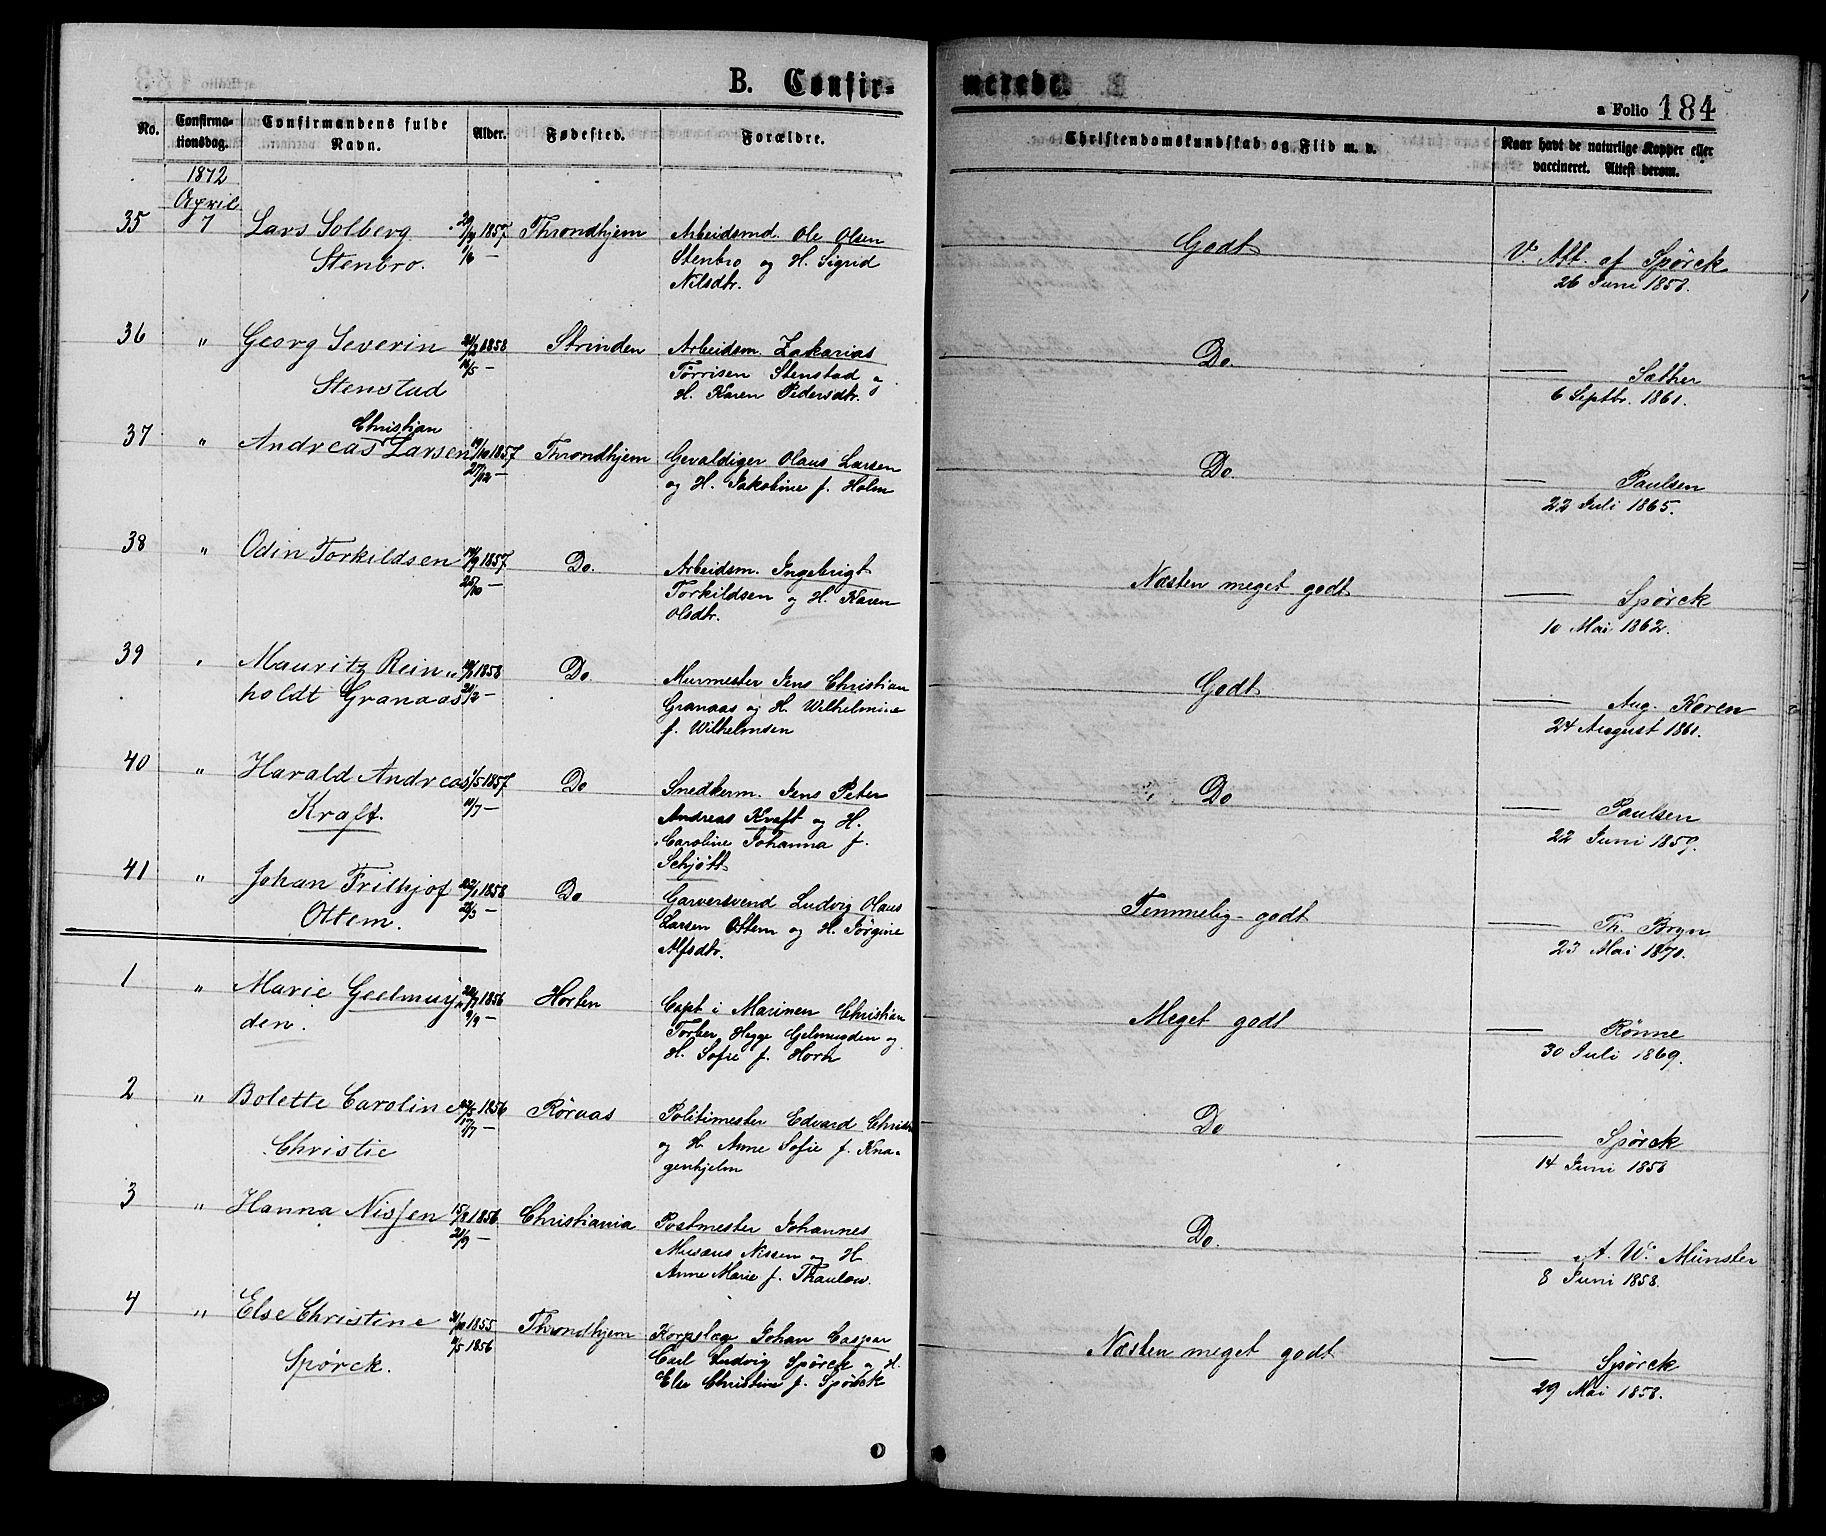 B. Confirmerede.
a Folio 184
No. Confirmationsdag. Confirmandens fulde Navn. Alder. Fødested. Forældre. Christendomskundskab og Flid m. v. Naar havt de naturlige Kopper eller vaccineret. Attest derom.
1872
April
35 7 Lars Solberg 1857 Throndhjem Arbeidsmd. Ole Olsen Godt V. Att. af Spørck
Stenbro. 1/6 — Stenbro og H. Sigrid 26 Juni 1858.
Nilsdtr.
36 " Georg Severin 1858 Strinden Arbeidsm. Zakarias Do. — Sæther
Stenstad 16/5 — Tørrisen Stenstad og 6 Septbr. 1861.
H. Karen Pedersdtr.
Christian
37 " Andreas Larsen 19/10 1857 Throndhjem Gevaldiger Olaus Larsen Do. — Paulsen
27/12 — og H. Jakobine f. Holm 22 Juli 1865.
38 " Odin Torkildsen 14/9 1857 Do. Arbeidsm. Ingebrigt Næsten meget godt — Spørck
25/10 — Torkildsen og H. Karen 10 Mai 1862.
Olsdtr.
39 " Mauritz Rein„ 1858 Do Murmester Jens Christian Godt Aug. Koren
holdt Granaas 21/2 — Granaas og H. Wilhelmine 24 August 1861.
f. Wilhelmsen
40 " Harald Andreas 1/5 1857 Do Snedkerm. Jens Peter Do — Paulsen
Kraft. 11/7 — Andreas Kraft og H. 22 Juni 1859.
Caroline Johanna f.
Schjøtt
41 " Johan Frithjof 22/1 1858 Do Garversvend Ludvig Olaus Temmelig godt — Th. Bryn
Ottem. 21/3 — Larsen Ottem og H. Jørgine 23 Mai 1870.
Alfsdtr.
1 " Marie Geelmuy„ 1856 Horten Capt i Marinen Christian Meget godt — Rønne
den. 9/9 — Torber. Hegge Gelmuyden og 30 Juli 1869.
H. Sofie f. Horn
2 " Bolette Caroline 22/5 1856 Røraas Politimester Edvard Christie Do — Spørck
Christie 17/7 — og H. Anne Sofie f. Kna- 14 Juni 1858
genhjelm
3 " Hanna Nissen 15/8 1856 Christiania Postmester Johannes Do. — A. W. Münster
21/9 — Musæus Nissen og H 8 Juni 1858.
Anne Marie f. Thaulow.
4 " Else Christine 31/10 1855 Throndhjem Korpslæg Johan Caspar Næsten meget godt — Spørck
Spørck. 11/5 1856 Carl Ludvig Spørck og H. 29 Mai 1858.
Else Christine f. Spörck